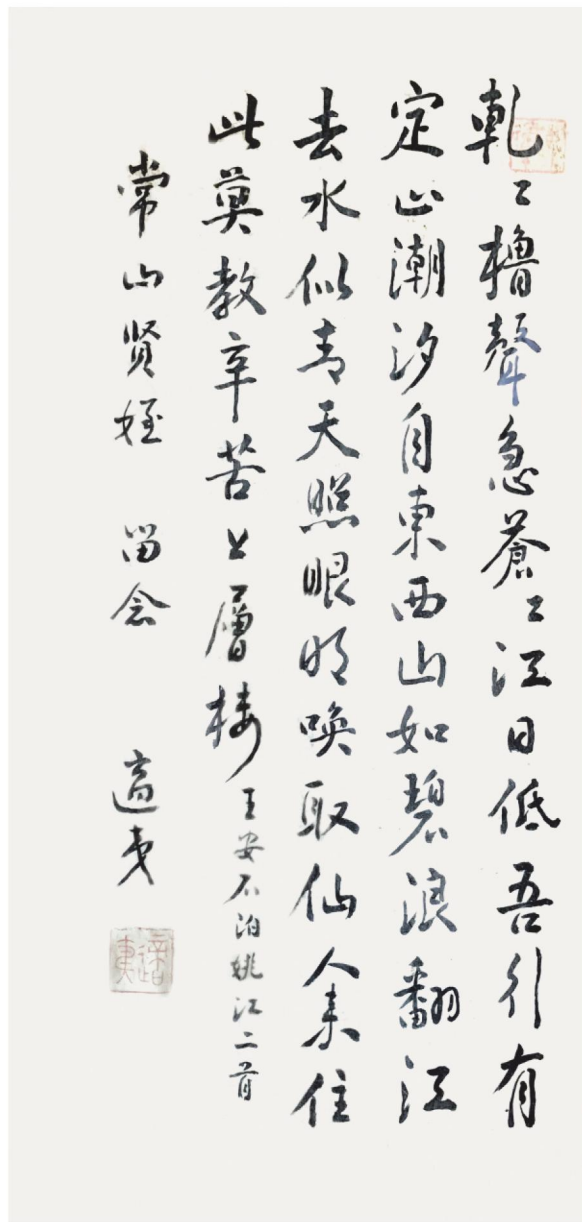 軋〻櫓聲急蒼〻江日低吾行有
定止潮汐自東西山如碧浪翻江
去水似青天照眼明喚取仙人来住
此莫教辛苦上層楼
王安石泊姚江二首
常山贤姪 留念
適夷
適夷